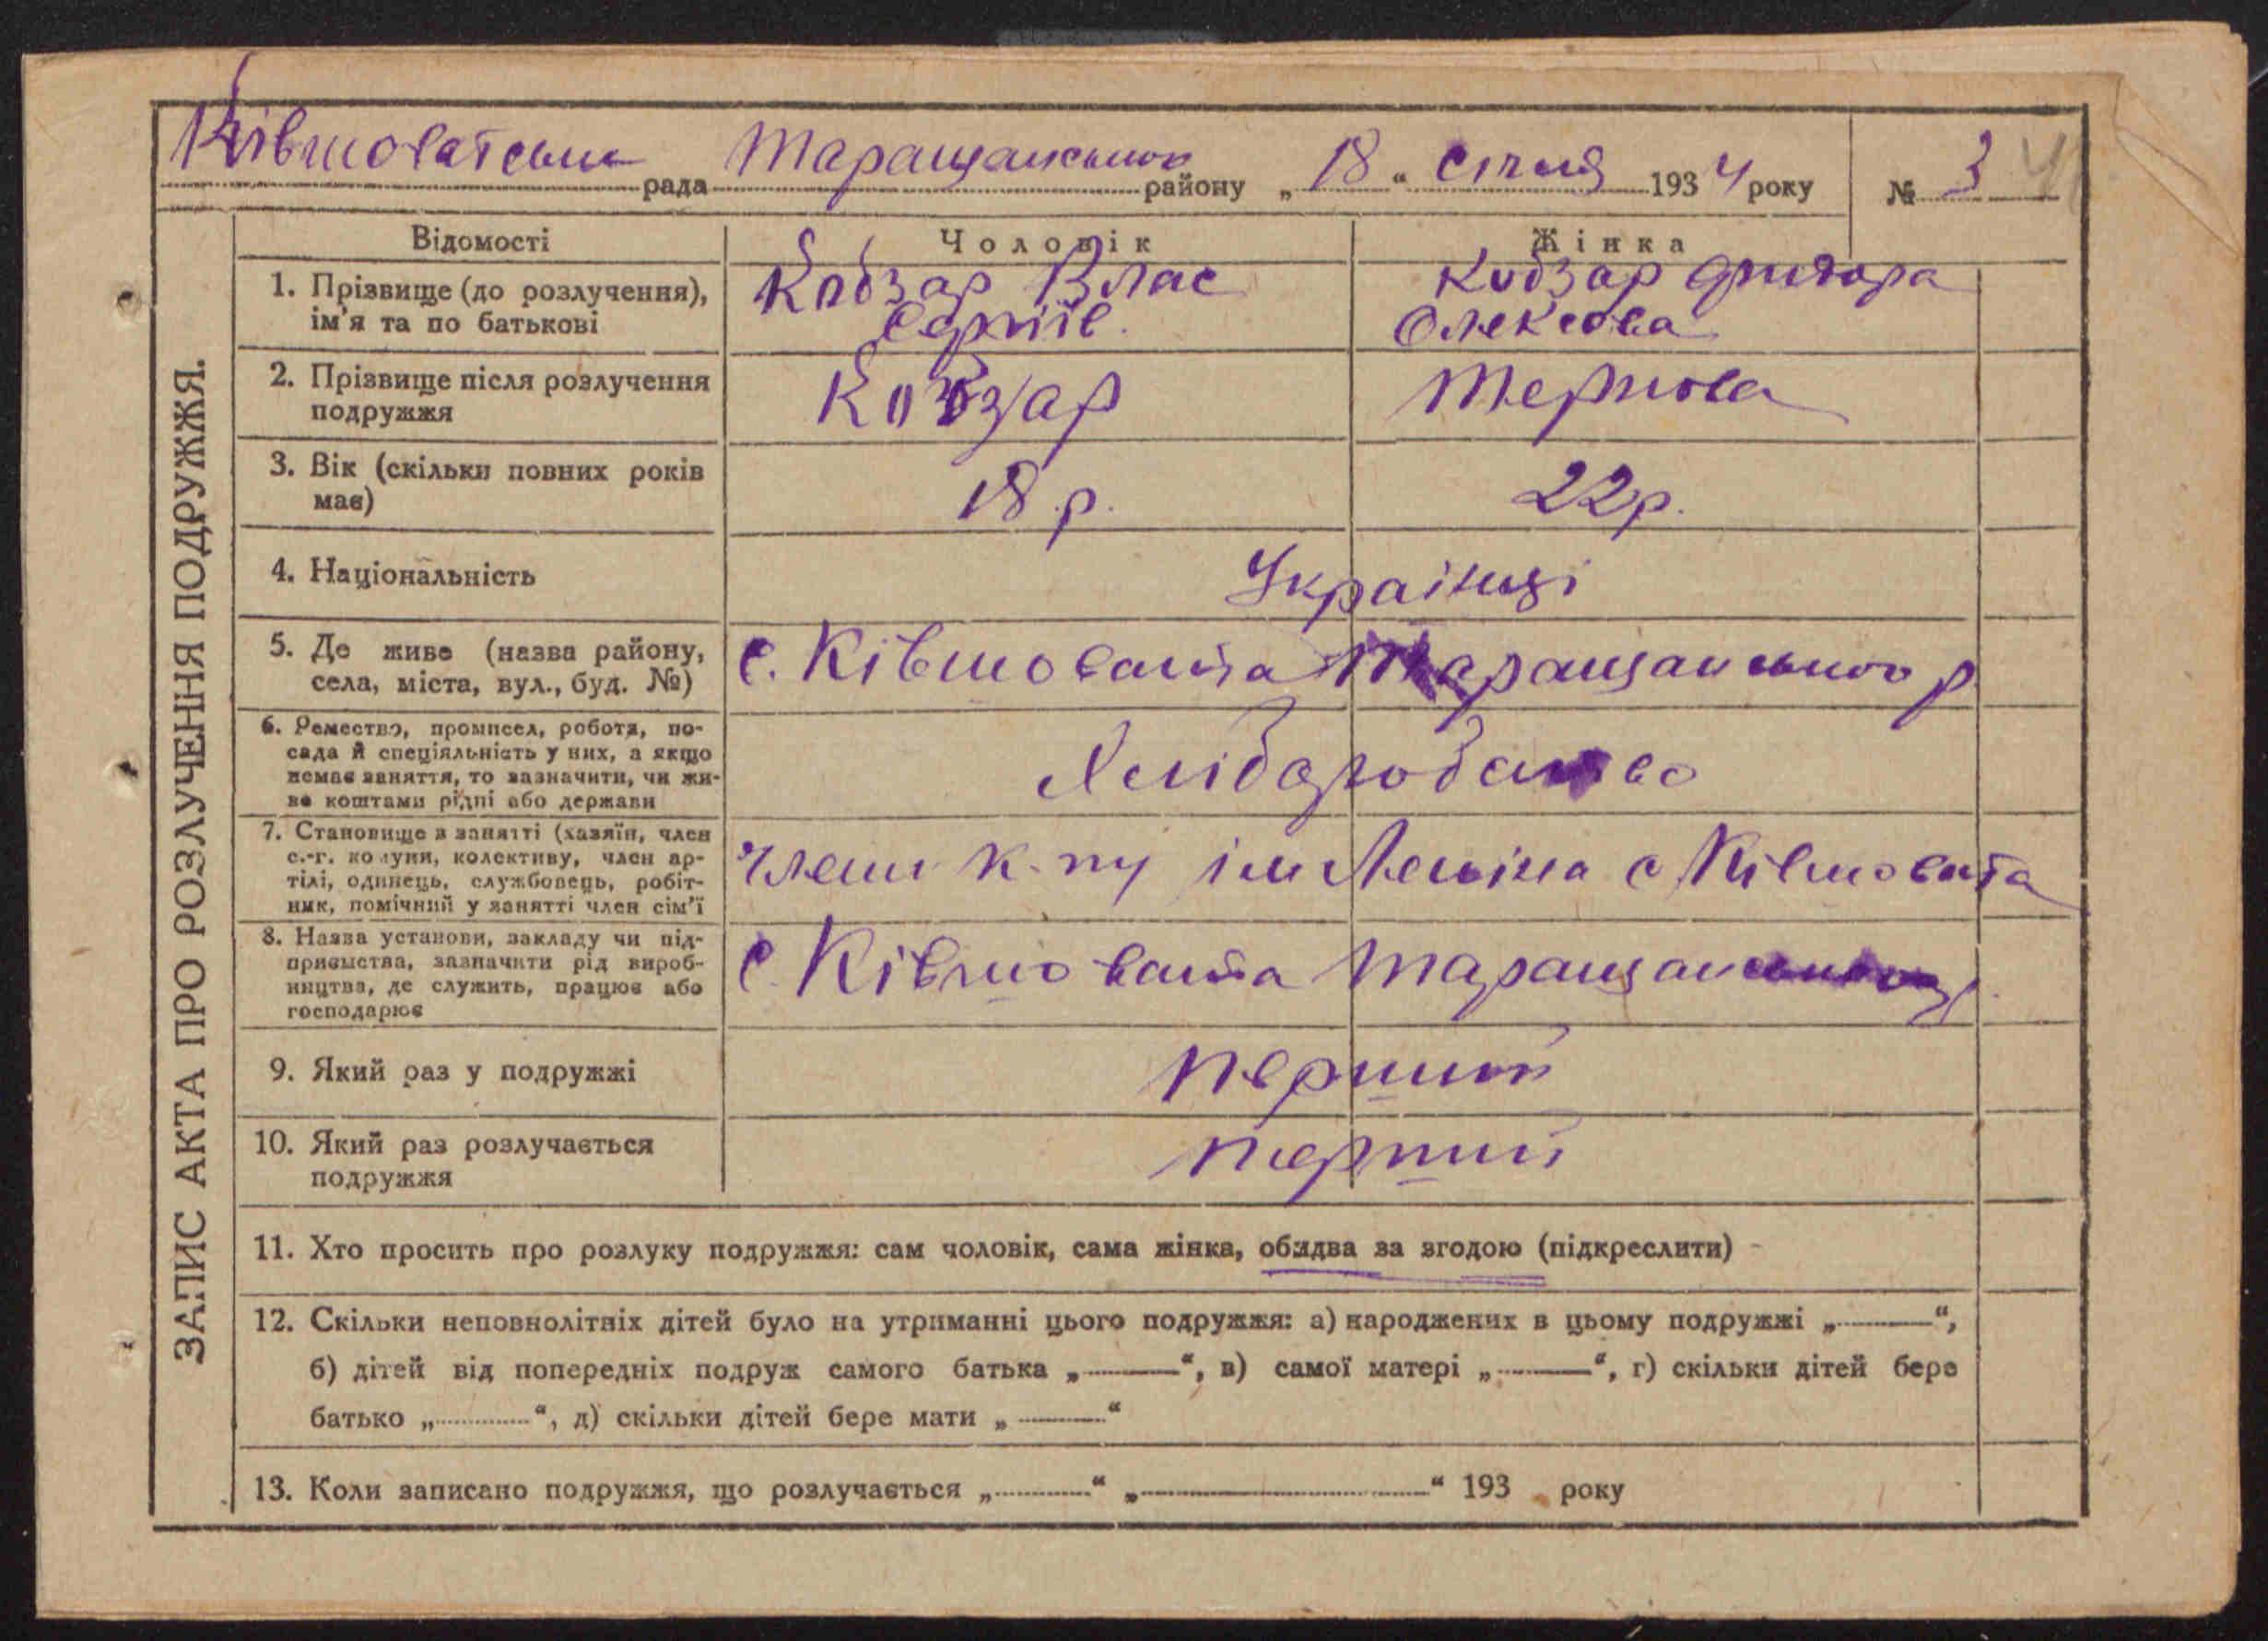 Ківшоватська рада Таращанського району „ 18 “ Січня 1934 року № 3
ЗАПИС АКТА ПРО РОЗЛУЧЕННЯ ПОДРУЖЖЯ.
Відомості Чоловік Жінка
1. Прізвище (до розлучення), Кобзар Влас Кобзар
ім'я та по батькові Олексова
2. Прізвище після розлучення Кобзар
подружжя
3. Вік (скільки повних років 18 р. 22 р.
має)
4. Національність Українці
5. Де живе (назва району, с. Ківшовата Таращанського р.
села, міста, вул., буд. №)
6. Ремество, промисел, робота, по-
сада й спеціяльність у них, а якщо Хліборобство
немає заняття, то зазначити, чи жи-
ве коштами рідні або держави
7. Становище в занятті (хазяїн, член
с.-г. комуни, колективу, член ар- члени к-пу ім Леніна с Ківшовата
тілі, одинець, службовець, робіт-
ник, помічний у занятті член сім'ї
8. Назва установи, закладу чи під-
приємства, зазначити рід вироб- с. Ківшовата Таращанського р.
ництва, де служить, працює або
господарює
9. Який раз у подружжі перший
10. Який раз розлучається перший
подружжя
11. Хто просить про розлуку подружжя: сам чоловік, сама жінка, обидва за згодою (підкреслити)
12. Скільки неповнолітніх дітей було на утриманні цього подружжя: а) народжених в цьому подружжі „——“,
б) дітей від попередніх подруж самого батька „——“, в) самої матері „——“, г) скільки дітей бере
батько „..........“, д) скільки дітей бере мати „——“
13. Коли записано подружжя, що розлучається „..........“ „——“ 193 року